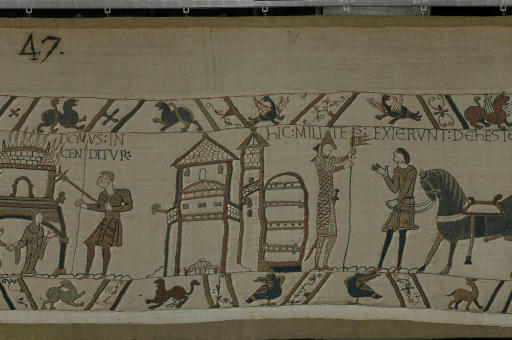 47.
DOMVS:IN
CENDITVR:
HIC:MILITES:EXIERVNT:DEHESTE